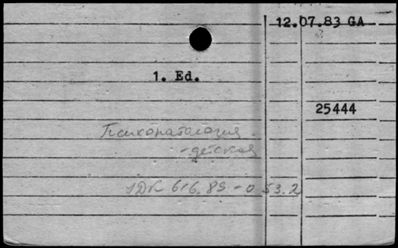 12.07.83 GA
1. Ed.
25444
Психопатология
- детская
УДК 616.89-053.2